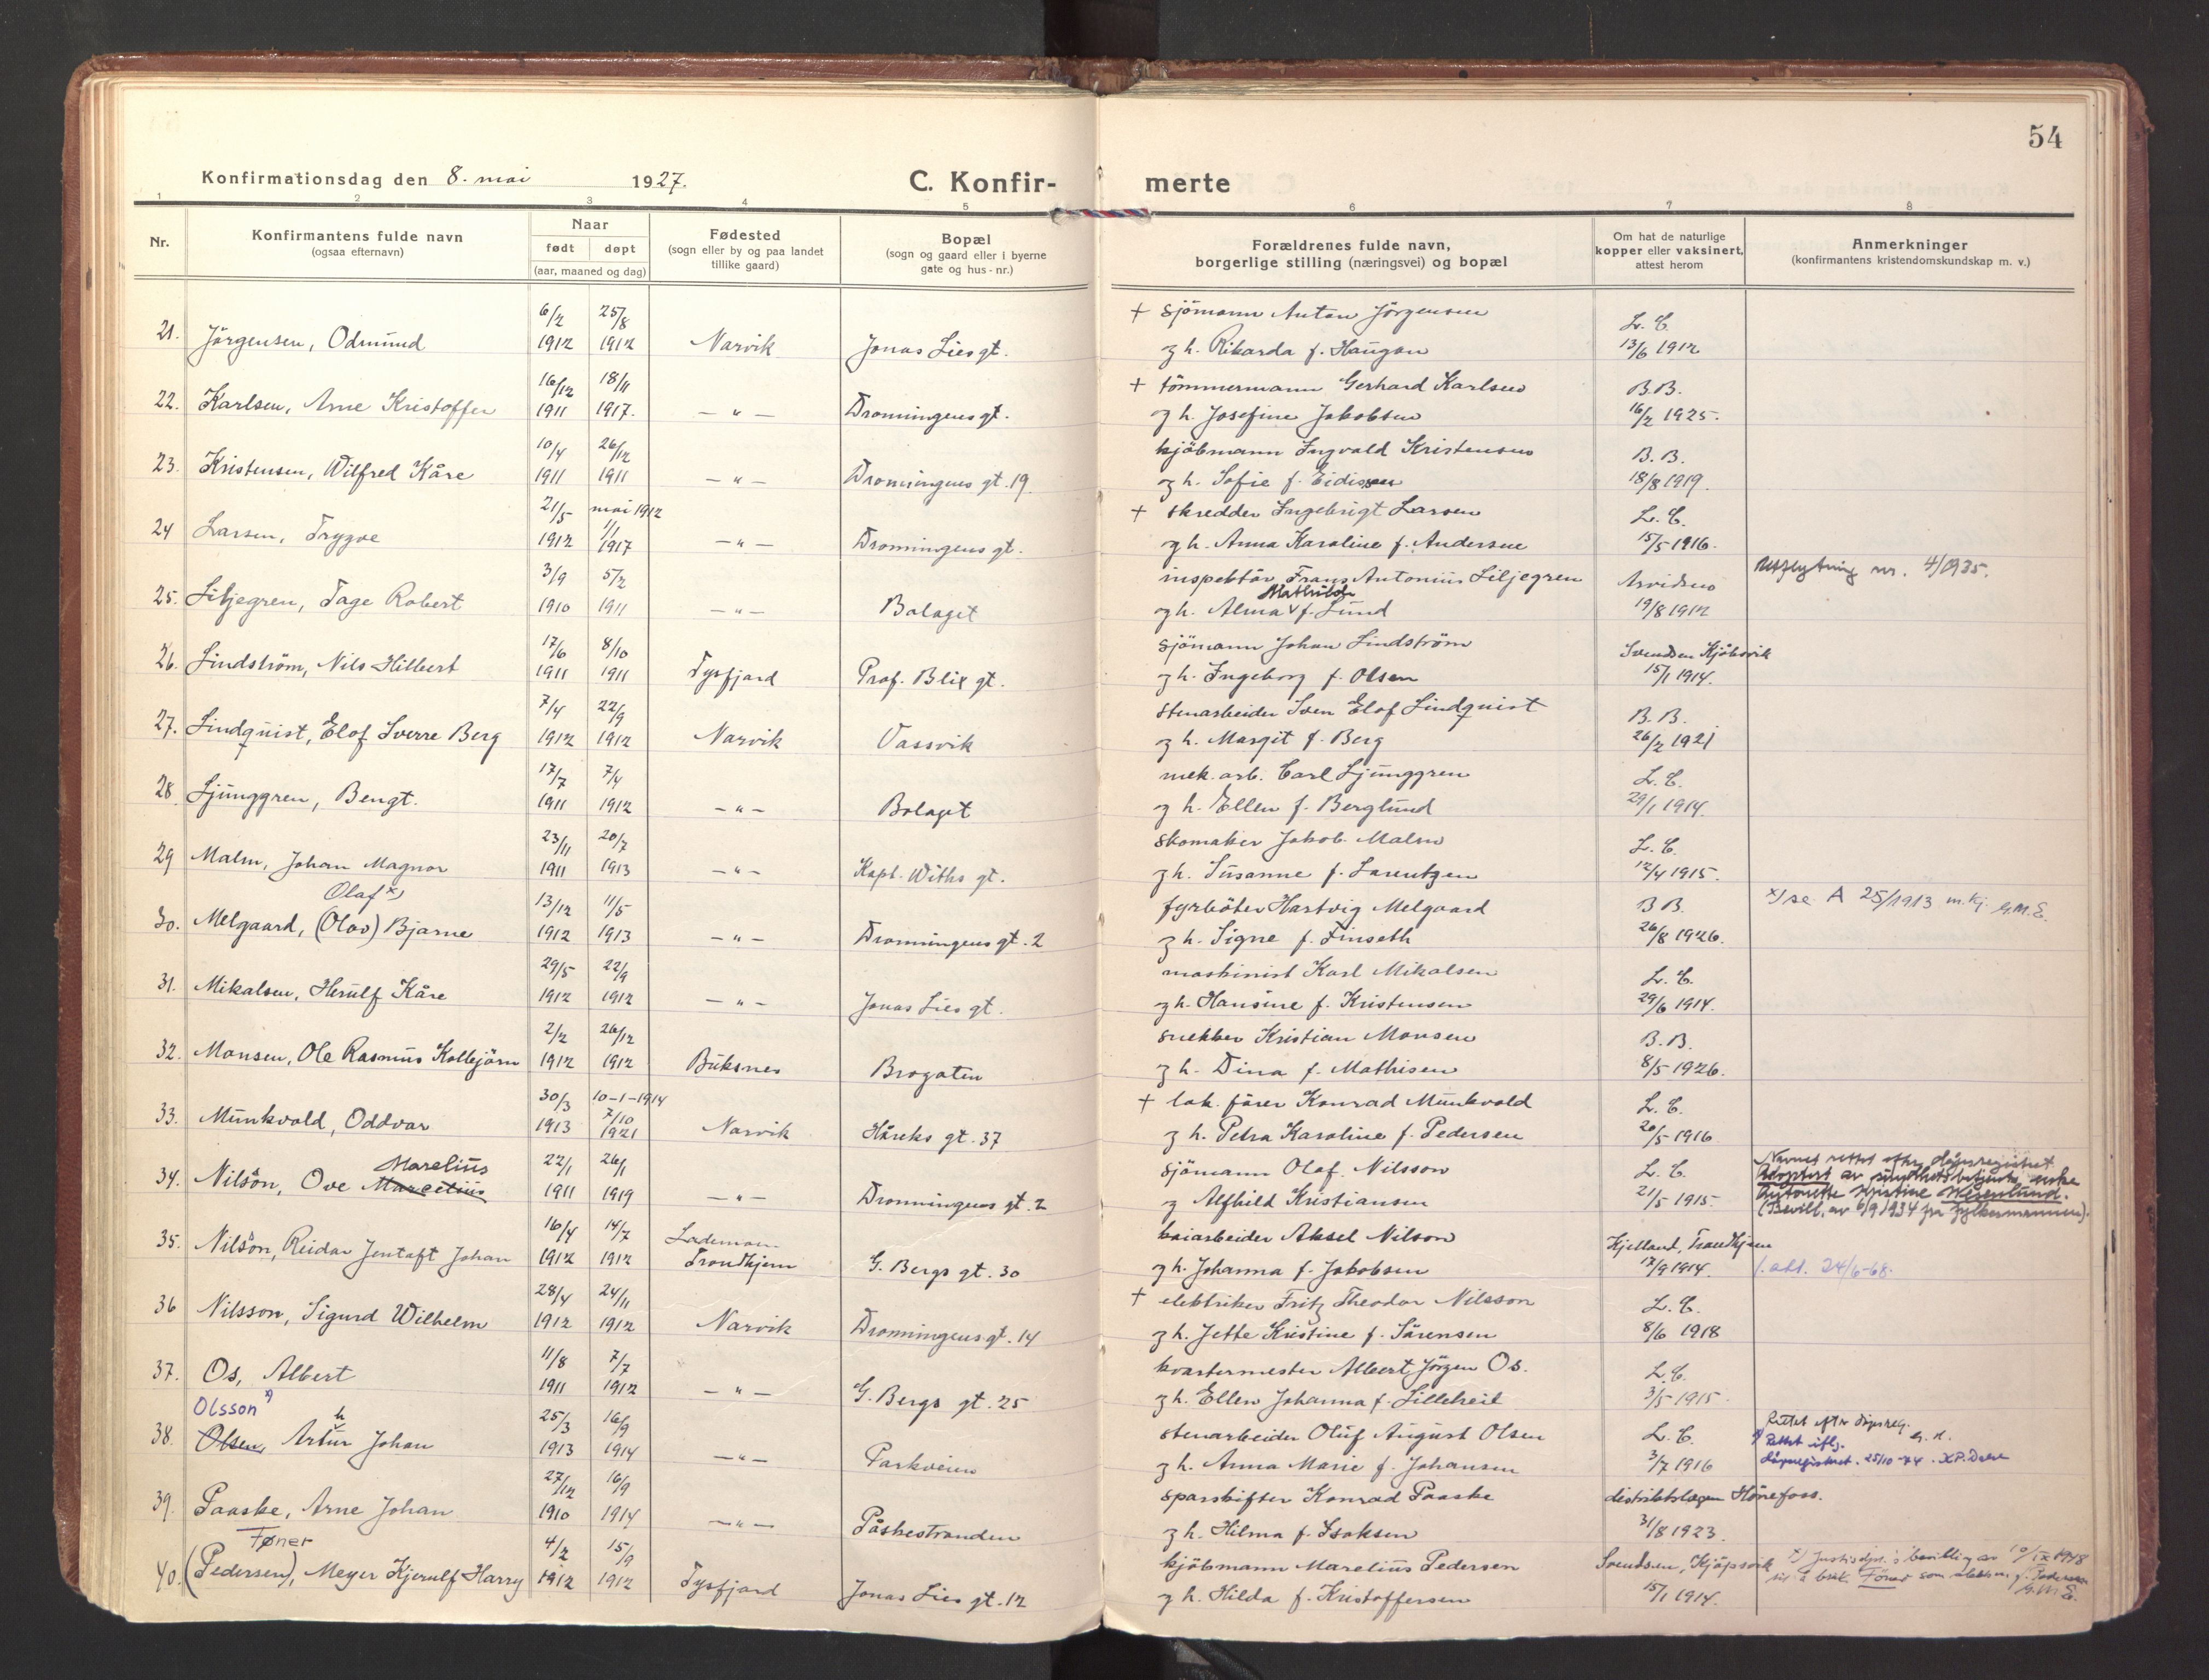 54
Konfirmationsdag den 8. mai 1927.
C. Konfirmerte
1 2 3 4 5 6 7 8
Nr.
Konfirmantens fulde navn
(ogsaa efternavn)
Naar
født døpt
(aar, maaned og dag)
Fødested
(sogn eller by og paa landet
tillike gaard)
Bopæl
(sogn og gaard eller i byerne
gate og hus-nr.)
Forældrenes fulde navn,
borgerlige stilling (næringsvei) og bopæl
Om hat de naturlige
kopper eller vaksinert,
attest herom
Anmerkninger
(konfirmantens kristendomskundskap m. v.)
6/2 25/8 + sjömann Anton Jörgensen L. C.
21. Jörgensen, Odmund 1912 1912 Narvik Jonas Lies gt. og h. Rikarda f. Haugan 13/6 1912
16/12 18/11 + tömmermann Gerhard Karlsen B.B.
22. Karlsen, Arne Kristoffer 1911 1917. — " — Dronningens gt. og h. Josefine Jakobsen 16/2 1925.
10/4 26/12 kjöbmann Ingvald Kristensen B. B.
23. Kristensen, Wilfred Kåre 1911 1911 — " — Dronningens gt. 19 og h. Sofie f. Eidissen 18/8 1919.
21/5 mai 1912 + skredder Ingebrigt Larsen L. C.
24 Larsen, Trygve 1912 1/1 1917 — " — Dronningens gt. og h. Anna Karoline f. Andersen 15/5 1916.
3/9 5/2 inspektör Frans Antonius Liljegren Arvidsen Utflytning nr. 4/1935.
25. Liljegren, Tage Robert 1910 1911 — " — Bolaget og h. Alma Mathilde f. Lund 19/8 1912
17/6 8/10 sjömann Johan Lindström Svendsen Kjöbsvik
26. Lindström, Nils Hilbert 1911 1911 Tysfjord Prof. Blix gt. og h. Ingeborg f. Olsen 15/1 1914.
7/4 22/9 stenarbeider Sven Elof Lindquist B. B.
27. Lindquist, Elof Sverre Berg 1912 1912 Narvik Vassvik og h. Margit f. Berg 26/2 1921
17/7 7/4 mek. arb. Carl Ljunggren L. C.
28. Ljunggren, Bengt. 1911 1912 — " — Bolaget og h. Ellen f. Berglund 29/1 1914.
23/11 20/7 skomaker Jakob Malm L. C.
29 Malm, Johan Magnor 1911 1913 — " — Kapt. Withs gt. og h. Susanne f. Larentzen 12/4 1915.
Olaf x) 13/12 11/5 fyrböter Hartvig Melgaard B B. x) se A 25/1913 m.kj. G.M.E.
30. Melgaard, (Olav) Bjarne 1912 1913 — " — Dronningens gt. 2 og h. Signe f. Finseth 26/8 1926.
29/5 22/9 maskinist Karl Mikalsen L. C.
31. Mikalsen, Herulf Kåre 1912 1912 — " — Jonas Lies gt. og h. Hansine f. Kristensen 29/6 1914.
2/2 26/12 snekker Kristian Monsen B. B.
32. Monsen, Ole Rasmus Kolbjörn 1912 1912 Buksnes Brogaten og h. Dina f. Mathisen 8/5 1926.
30/3 10-1-1914 + lok. förer Konrad Munkvold L. C.
33. Munkvold, Oddvar 1913 7/10 1921 Narvik Håreks gt. 37 og h. Petra Karoline f. Pedersen 20/5 1916
Marelius 22/1 26/1 sjömann Olaf Nilsson L. C. Navnet rettet efter døpsregistret
34. Nilsson, Ove Marcelius 1911 1919 — " — Dronningens gt. 2 og Alfhild Kristiansen 21/5 1915. Adoptert av sundhetsbetjents enke
Antonette Kristine Wesenlund.
(Bevill. av 6/9 1934 fra fylkesmannen).
16/4 14/7 Lademoen kaiarbeider Aksel Nilson Kjelland, Trondhjem
35. Nilson, Reidar Jentoft Johan 1912 1912 Trondhjem G. Bergs gt. 30 og h. Johanna f. Jakobsen 17/9 1914. 1. att. 24/6-68.
28/4 24/11 + elektriker Fritz Theodor Nilsson L. C.
36 Nilsson, Sigurd Wilhelm 1912 1912 Narvik Dronningens gt. 14 og h. Jette Kristine f. Sörensen 8/6 1918
11/8 7/7 kvartermester Albert Jörgen Os. L. C.
37. Os, Albert 1911 1912 — " — G. Bergs gt. 25 og h. Ellen Johanna f. Lilleheil 3/5 1915.
Olsson x) h 25/3 16/9 stenarbeider Oluf August Olsen L. C. Rettet efter døpsreg. G. H.
38. Olsen, Artur Johan 1913 1914 — " — Parkveien og h. Anna Marie f. Johansen 3/7 1916 x) Rettet iflg.
døpsregistret. 25/10-74.
27/12 16/9 sporskifter Konrad Paaske distriktslægen Hönefoss.
39. Paaske, Arne Johan 1910 1914 — " — Påskestranden og h. Hilma f. Isaksen 31/8 1923.
Føner 4/2 15/9 kjöbmann Marelius Pedersen Svendsen, Kjöpsvik x) Justisdpt.s bevilling av 10/IX 1948
40. (Pedersen), Meyer Kjerulf Harry 1912 1912 Tysfjord Jonas Lies gt. 12 og h. Hilda f. Kristoffersen 15/1 1914. til å bruke Föner som slektsn. f. Pedersen
G.M.E.